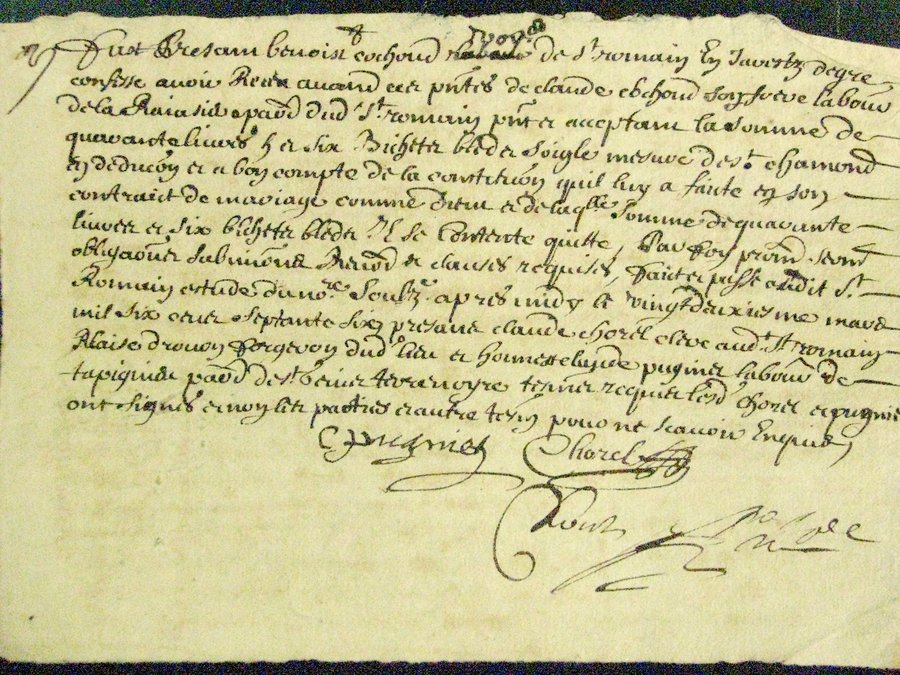 Fust presant benoist cochond de st romain en Javestz de gre
confesse avoir Receu avand ces pntes de claude cochond son frere labour
de la Raiasie parr dud st romain pnt et acceptant la somme de
quarante livres et six Bichetz bled soigle mesure de st chamond
en deducon et a bon compte de la constitution quil luy a faite en son
contrait de mariage comme et de laqlle somme de quarante
livres et six bichetz bled Il se contente quitte, Par foy
obligaoner submions Renond et clauses requises, faite et passe audit st
Romain estude du nore soubz apres midy le vingt deuxiesme mars
mil six cens septante six presans claude chorel clerc aud st romain
Blaise drevon forgeron dud lieu et honneste pugniet labour de
tapignieu parr de st terrenoyre tesmes requis lesd chorel et pugniet
ont signes et non les parties et autre tesm pour ne scavoir Enquis
C pugniet Chorel